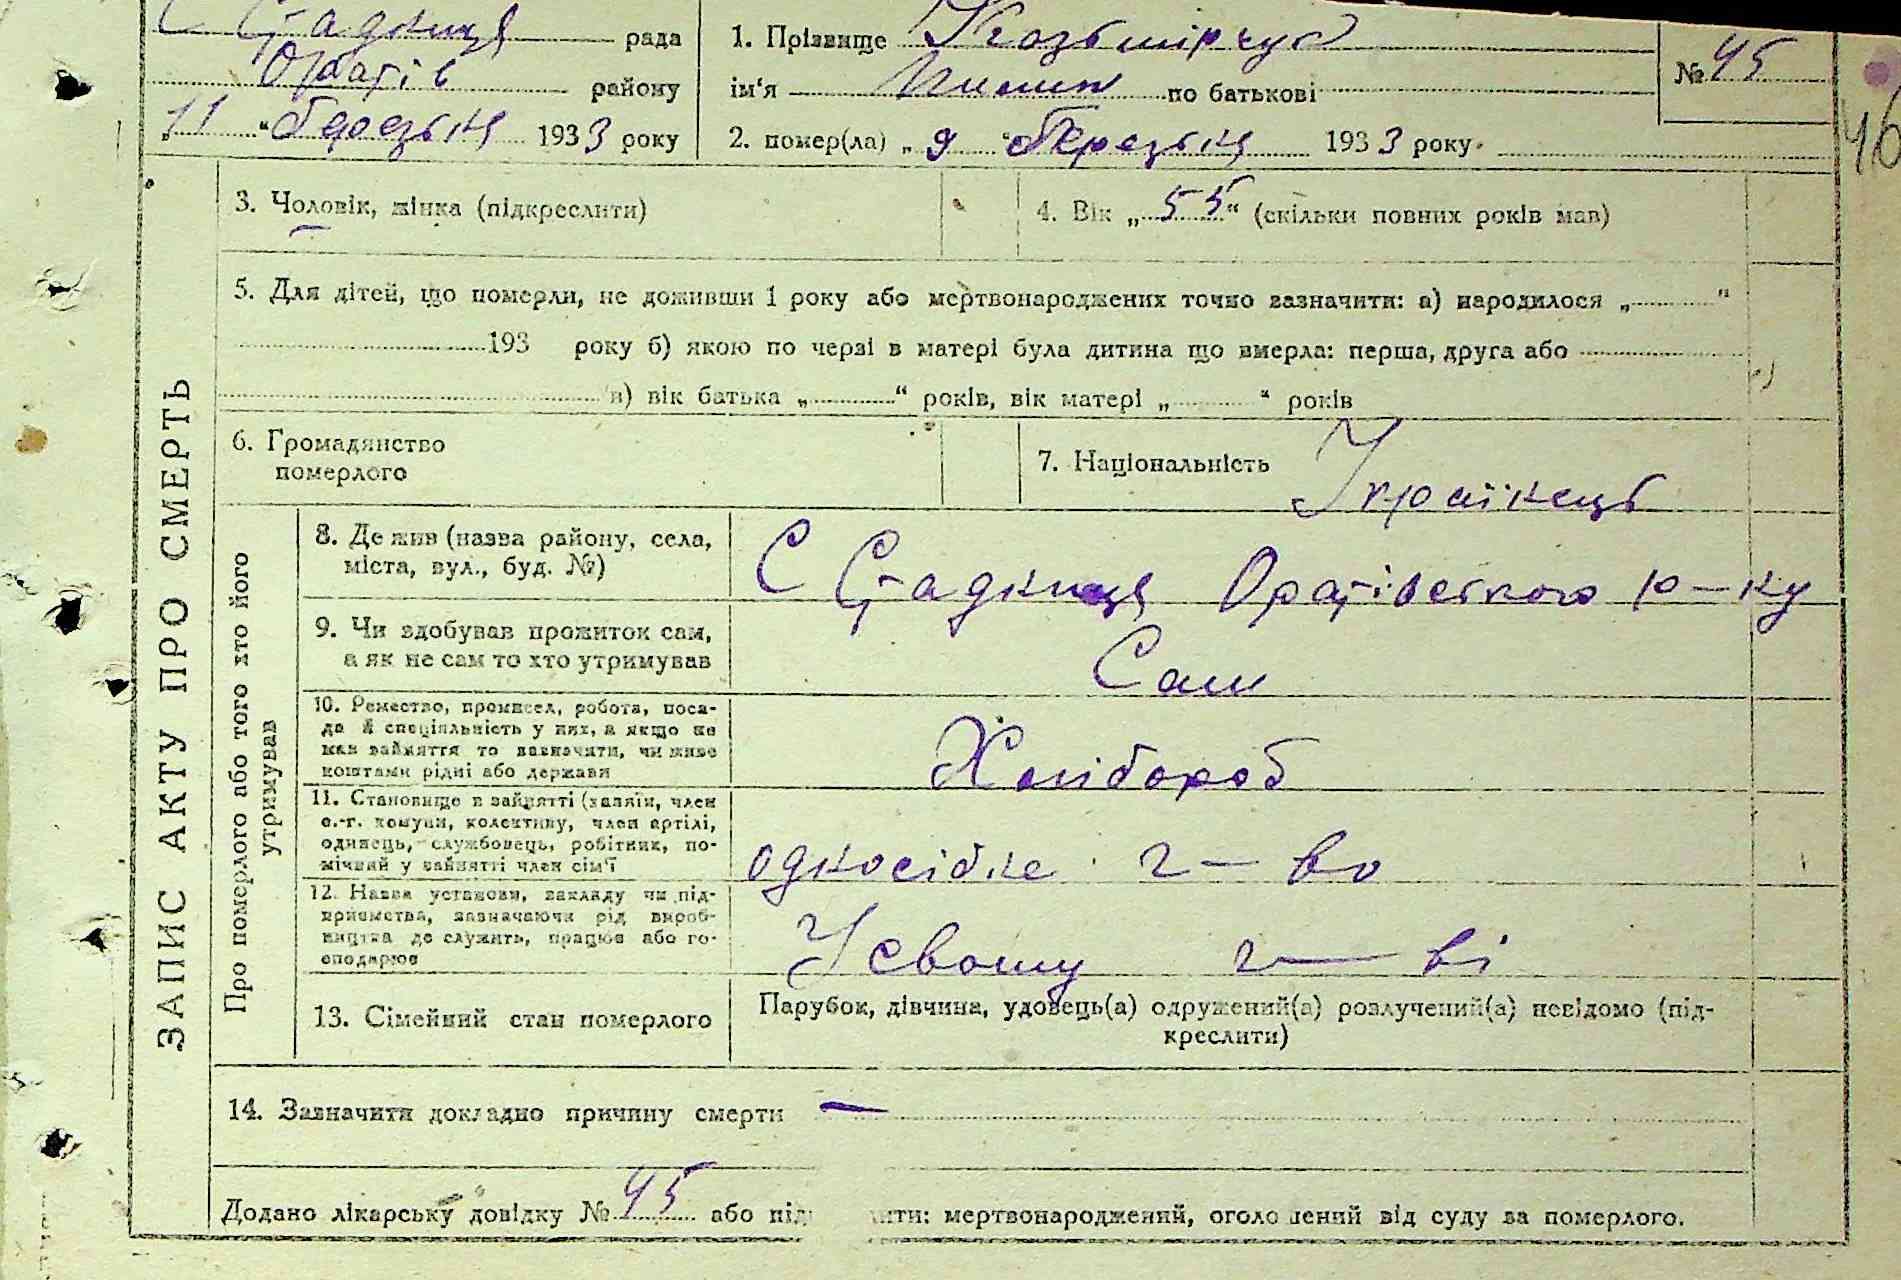 С Стадниця рада
Оратів району
„11“ березня 1933 року
1. Прізвище Козьмірчук
ім‘я по батькові
2. помер(ла) „9“ березня 1933 року.
№ 45
46
ЗАПИС АКТУ ПРО СМЕРТЬ
3. Чоловік, жінка (підкреслити)
4. Вік „55“ (скільки повних років мав)
5. Для дітей, що померли, не доживши 1 року або мертвонароджених точно зазначити: а) народилося „ “
193 року б) якою по черзі в матері була дитина що вмерла: перша, друга або
в) вік батька „ “ років, вік матері „ “ років
6. Громадянство
померлого
7. Національність Українець
Про померлого або того хто його
утримував
8. Де жив (назва району, села,
міста, вул., буд. №)
С Стадниця Оратівського р-ну
9. Чи здобував прожиток сам,
а як не сам то хто утримував
Сам
10. Ремество, промисел, робота, поса-
да й спеціяльність у них, а якщо не
мав зайняття то зазначити, чи живе
коштами рідні або держави
Хлібороб
11. Становище в зайнятті (хазяїн, член
с.-г. комуни, колективу, член артілі,
одинець, службовець, робітник, по-
мічний у зайнятті член сім'ї
односібне г-во
12. Назва установи, закладу чи під-
приємства, зазначаючи рід вироб-
ництва де служить, працює або го-
сподарює
У свому г-ві
13. Сімейний стан померлого
Парубок, дівчина, удовець(а) одружений(а) розлучений(а) невідомо (під-
креслити)
14. Зазначити докладно причину смерти —
Додано лікарську довідку № 45 або під ити: мертвонароджений, оголошений від суду за померлого.